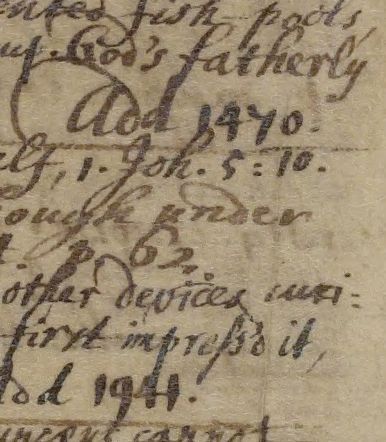 ented fish pools,
God's fatherly
Add 1470.
elf, 1. Joh. 5:10.
ough under
p. 62.
other devices curi=
first impress'd it,
Add 1941.
cannot